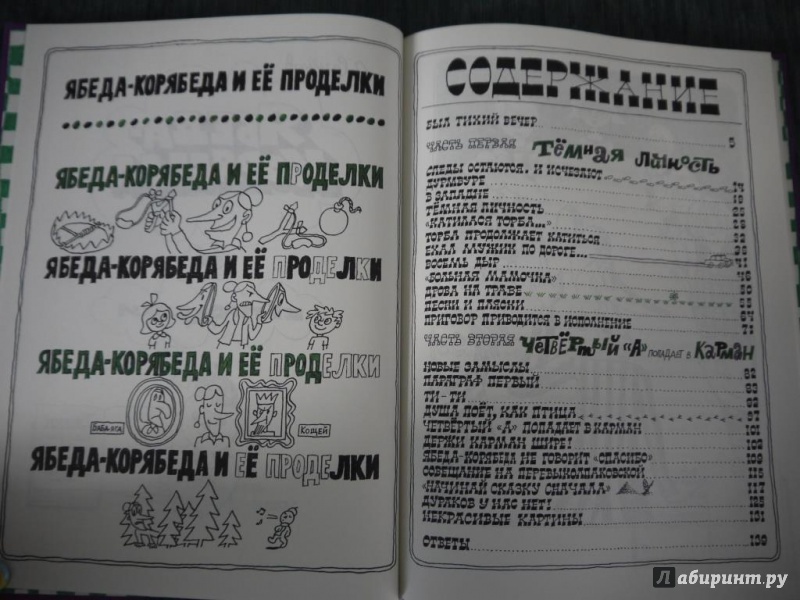 ЯБЕДА-КОРЯБЕДА И ЕЁ ПРОДЕЛКИ
ЯБЕДА-КОРЯБЕДА И ЕЁ ПРОДЕЛКИ
ЯБЕДА-КОРЯБЕДА И ЕЁ ПРОДЕЛКИ
ЯБЕДА-КОРЯБЕДА И ЕЁ ПРОДЕЛКИ
БАБА-ЯГА
КОЩЕЙ
ЯБЕДА-КОРЯБЕДА И ЕЁ ПРОДЕЛКИ
СОДЕРЖАНИЕ
БЫЛ ТИХИЙ ВЕЧЕР 5
ЧАСТЬ ПЕРВАЯ ТЁМНАЯ ЛИЧНОСТЬ
СЛЕДЫ ОСТАЮТСЯ. И ИСЧЕЗАЮТ
ДУРИБУРЕ
В ЗАПАДНЕ 19
ТЁМНАЯ ЛИЧНОСТЬ
«КАТИЛАСЯ ТОРБА...»
ТОРБА ПРОДОЛЖАЕТ КАТИТЬСЯ 32
ЕХАЛ ЛУЖИН ПО ДОРОГЕ...
ВОСЕМЬ ДЫР
«БОЛЬНАЯ МАМОЧКА»
ДРОВА НА ТРАВЕ
ПЕСНИ И ПЛЯСКИ
ПРИГОВОР ПРИВОДИТСЯ В ИСПОЛНЕНИЕ 71
ЧАСТЬ ВТОРАЯ ЧЕТВЁРТЫЙ «А» ПОПАДАЕТ В КАРМАН
НОВЫЕ ЗАМЫСЛЫ 82
ПАРАГРАФ ПЕРВЫЙ
ТИ-ТИ
ДУША ПОЁТ, КАК ПТИЦА 97
ЧЕТВЁРТЫЙ «А» ПОПАДАЕТ В КАРМАН 101
ДЕРЖИ КАРМАН ШИРЕ! 102
ЯБЕДА-КОРЯБЕДА НЕ ГОВОРИТ «СПАСИБО» 109
СОВЕЩАНИЕ НА ПЕРЕВЫКОЩАКОВСКОЙ
«НАЧИНАЙ СКАЗКУ СНАЧАЛА» 117
ДУРАКОВ У НАС НЕТ! 125
НЕКРАСИВЫЕ КАРТИНЫ 131
ОТВЕТЫ 139
Лабиринт.ру